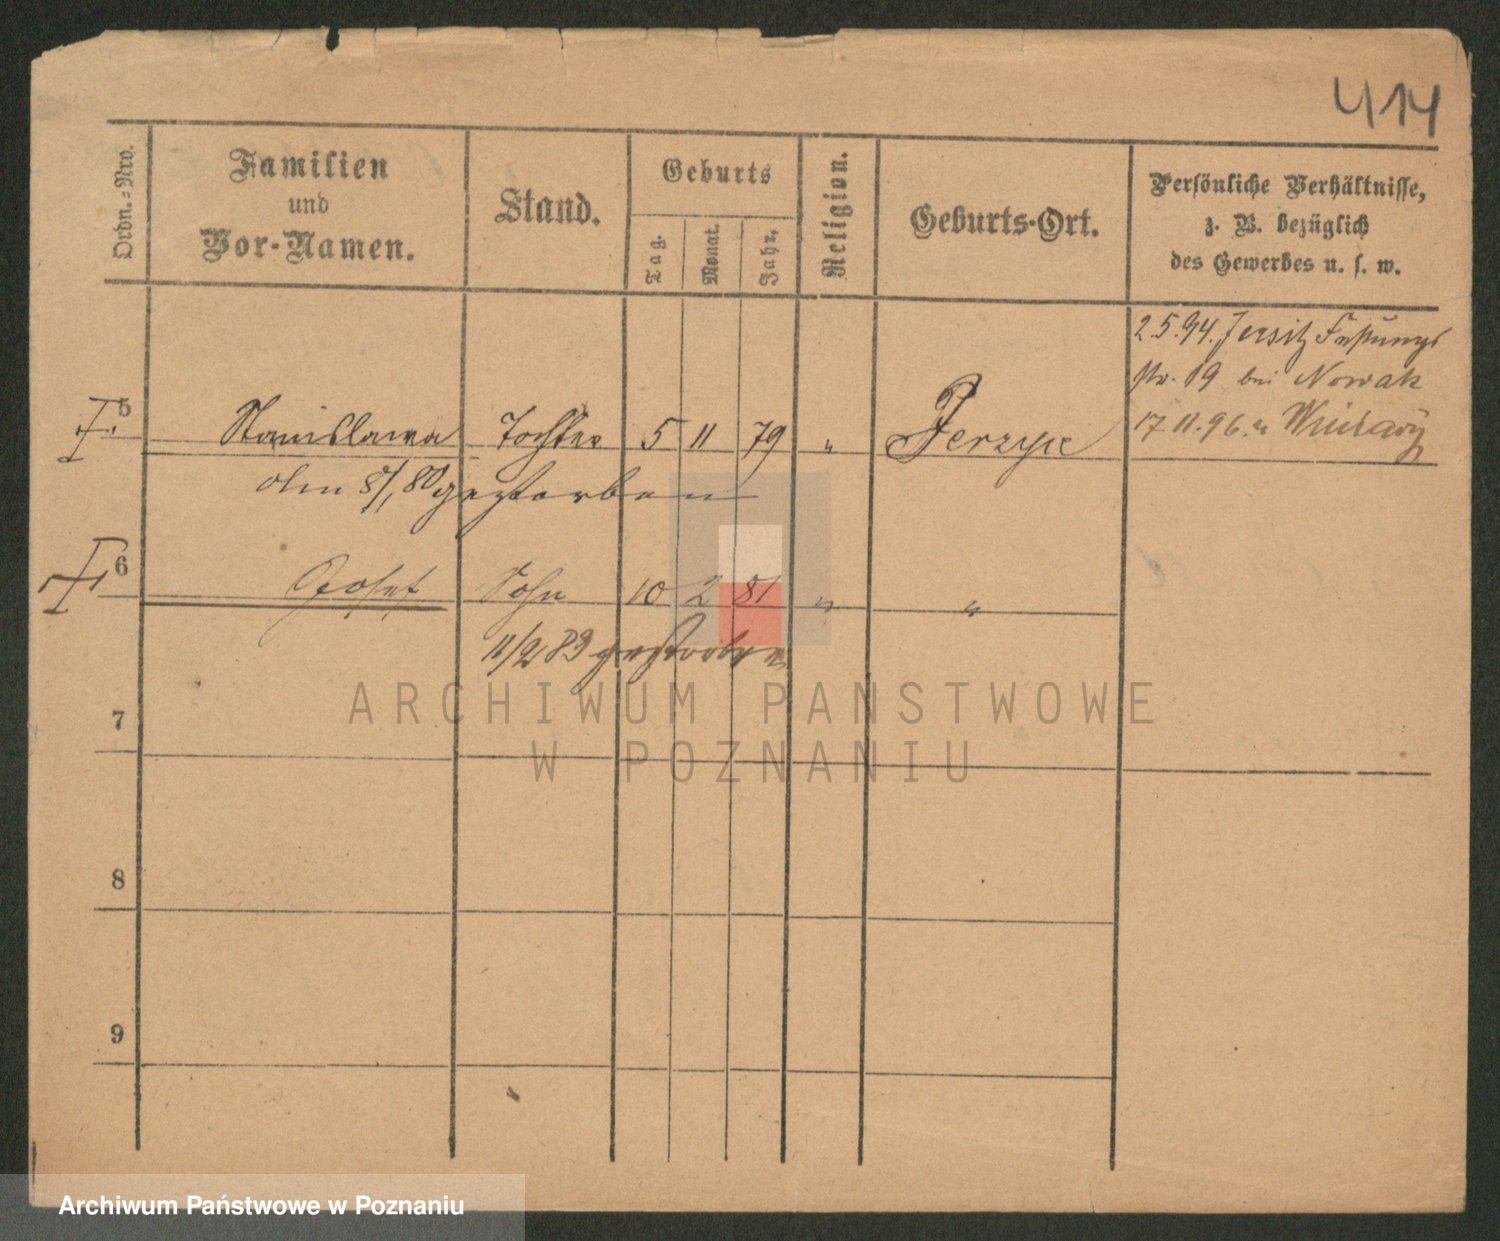 414
Ordn.-Nro.
Familien
und
Vor-Namen.
Stand.
Geburts
Tag.
Monat.
Jahr.
Religion.
Geburts-Ort.
Persönliche Verhältnisse,
z. B. bezüglich
des Gewerbes u. s. w.
2.5.94. Jersitz Festungs
str. 19 bei Nowak
17.11.96. n Winiary
5 Stanislawa Tochter 5 11 79 " Jerzyce
8/1 80 gestorben
6 Josef Sohn 10 2 81 " "
11/2 83 gestorben
7
8
9
ARCHIWUM PANSTWOWE
W POZNANIU
Archiwum Państwowe w Poznaniu